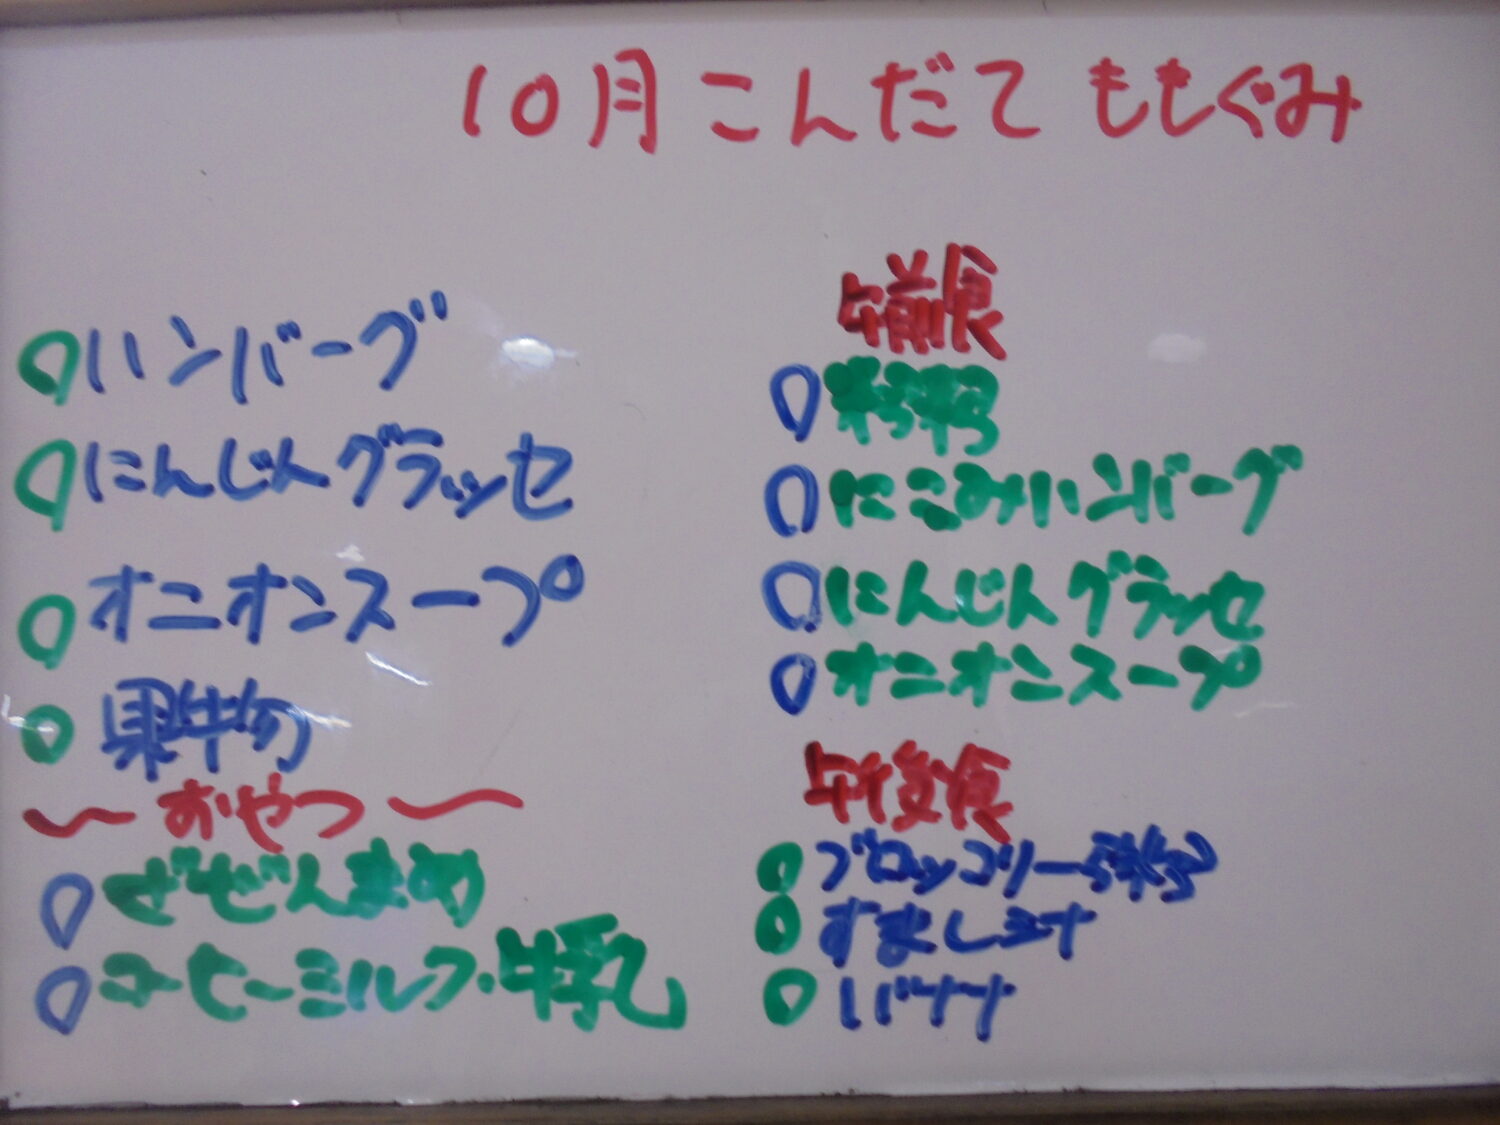 10月 こんだて ももぐみ
ハンバーグ
にんじんグラッセ
オニオンスープ
果物
〜おやつ〜
ぜんまめ
コーヒーミルク・牛乳
午前食
粥
にこみハンバーグ
にんじんグラッセ
オニオンスープ
午後食
ブロッコリー粥
すまし汁
バナナ